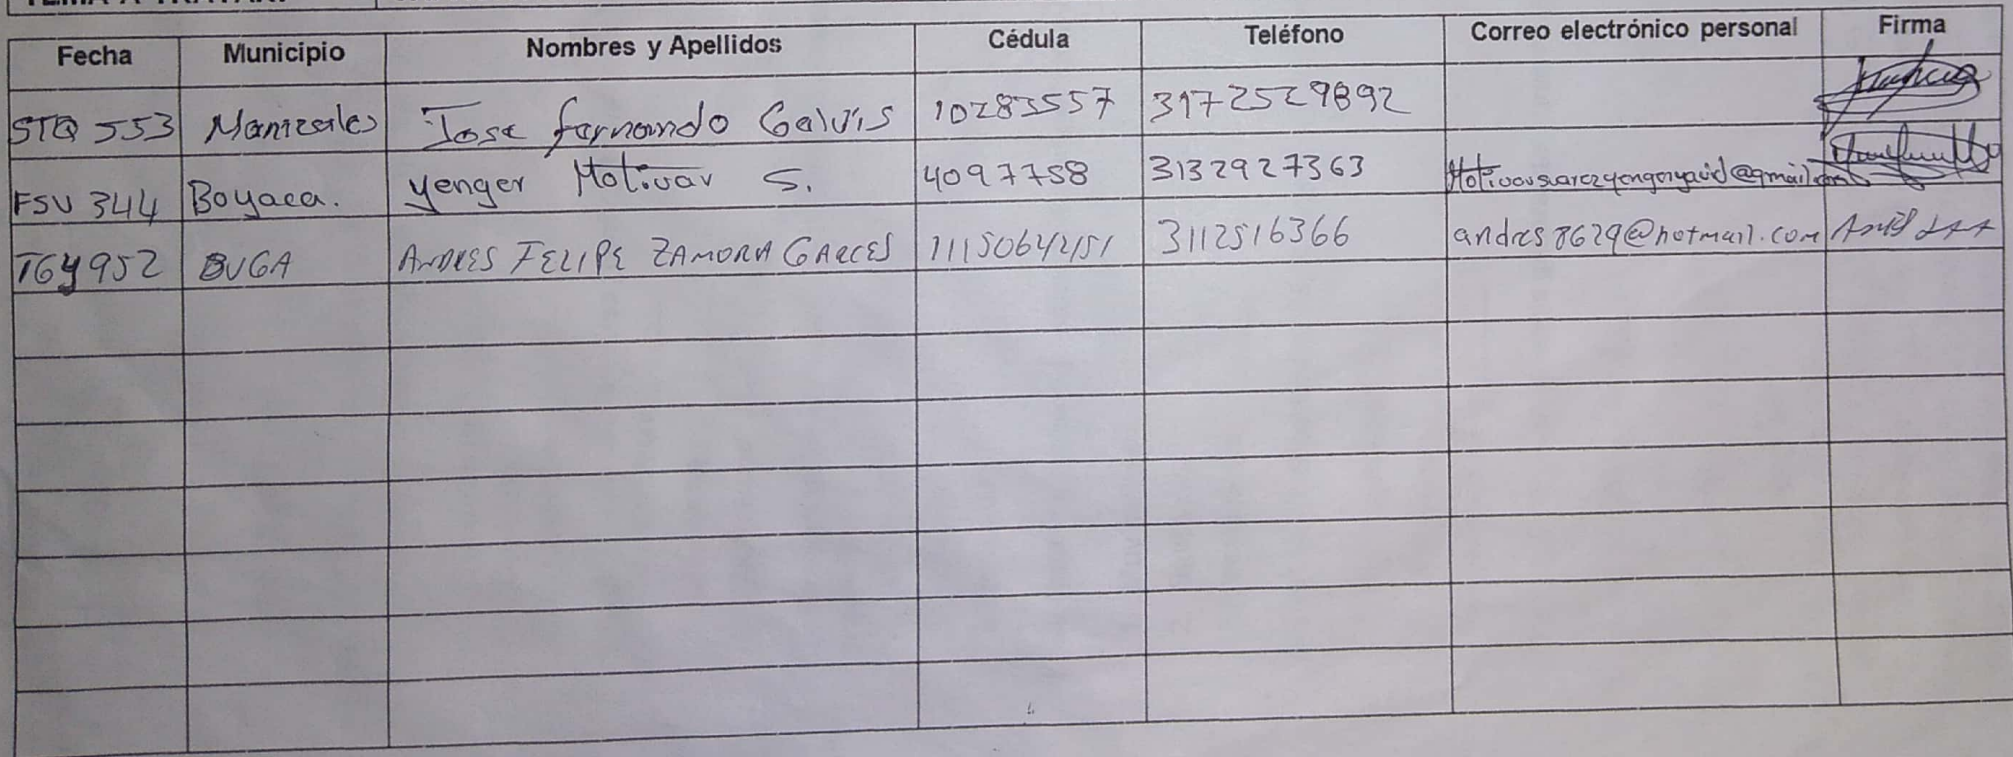 Fecha Municipio Nombres y Apellidos Cédula Teléfono Correo electrónico personal Firma
STQ 553 Manizales Jose fernando Galvis 10283557 3172529892
FSU 344 Boyaca. yenger Motivar S. 4097758 3132927363 Motivarsuarezyengeryavid@gmail.com
TGY952 BUGA ANDRES FELIPE ZAMORA GARCES 1115064251 3112516366 andres8629@hotmail.com